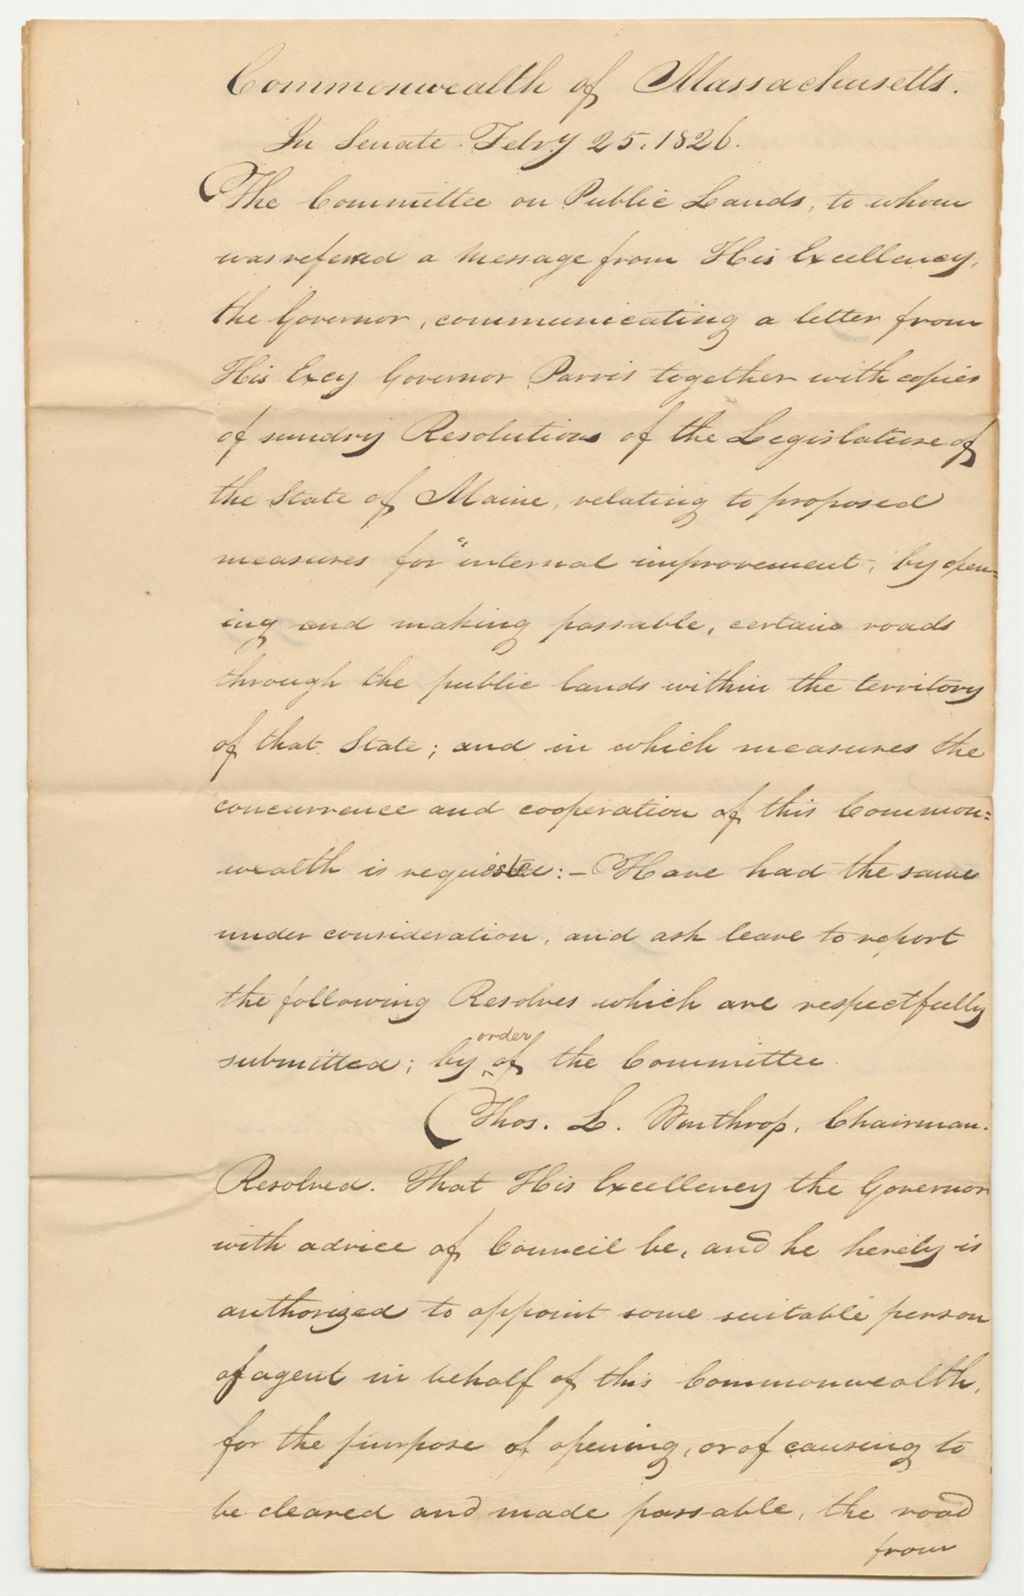 Commonwealth of Massachusetts.
In Senate Febry 25. 1826.
The Committee on Public Lands, to whom
was refered a message from His Excellency,
the Governor, communicating a letter from
His Excy Governor Parris together with copies
of sundry Resolutions of the Legislature of
the State of Maine, relating to proposed
measures for "internal improvement, by open=
ing and making passable, certain roads
through the public lands within the territory
of that State; and in which measures the
concurrence and cooperation of this Common=
wealth is requested:- Have had the same
under consideration, and ask leave to report
the following Resolves which are respectfully
submitted; by order of the Committee
Thos. L. Winthrop, Chairman.
Resolved. That His Excellency the Governor
with advice of Council be, and he hereby is
authorized to appoint some suitable person
of agent in behalf of this Commonwealth,
for the purpose of opening, or of causing to
be cleared and made passable, the road
from